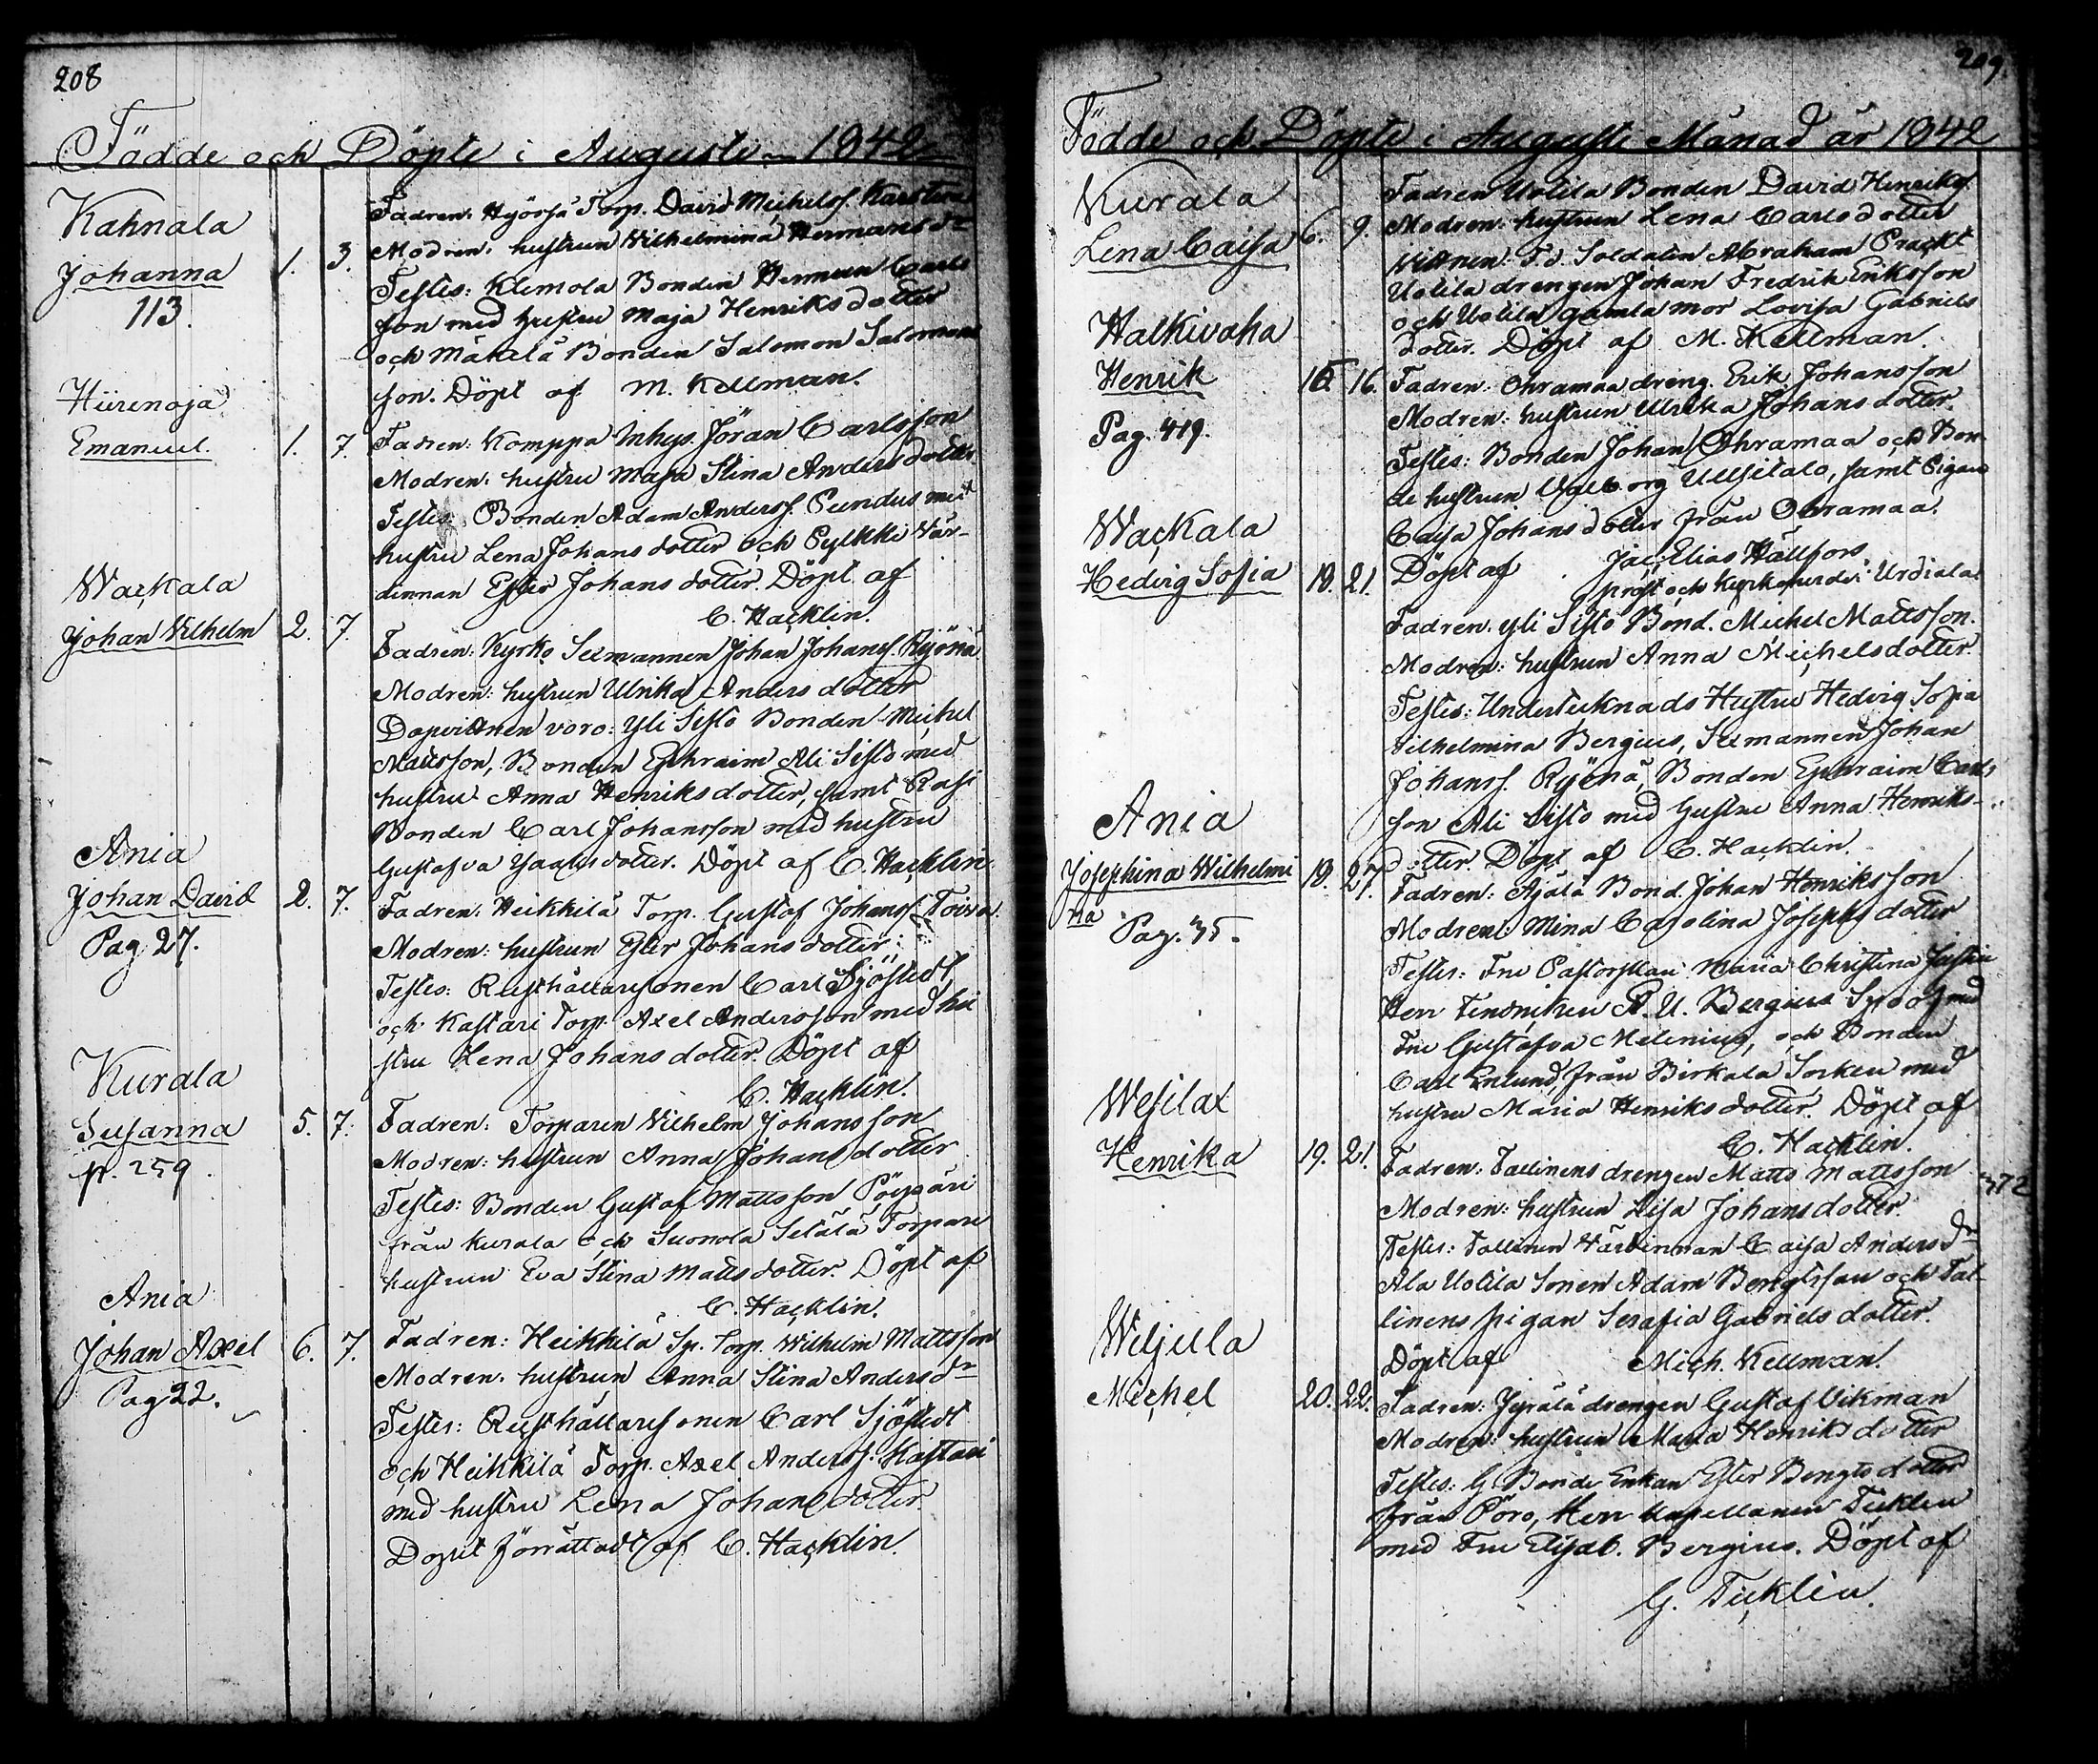 208
Födde och Döpte i Augusti 1842
Kahnala
Johanna 1. 3.
113.
Fadren: Hyörsä Torp. David Michelss. Karsten
Modren: hustrun Wilhelmina Hermansdr
Testes: Klemola Bonden Herman Carls
son med hustru Maja Henriksdotter
och Mäkälä Bonden Salomon Salomons
son. Döpt af M. Kellman.
Hiirenoja
Emanuel. 1. 7
Fadren: Komppa Inhys. Jöran Carlsson
Modren: hustru Maja Stina Andersdotter
Testes: Bonden Adam Anderss. Pundus med
hustru Lena Johansdotter och Pylkki Vär-
dinnan Ester Johansdotter. Döpt af
C. Hacklin.
Wackala
Johan Vilhelm 2. 7.
Fadren: Kyrko Sexmannen Johan Johanss. Ryönä
Modren: hustrun Ulrika Andersdotter
Dopvittnen voro: Yli Sisto Bonden Michel
Mattsson, Bonden Ephraim Ali Sisto med
hustru Anna Henriksdotter, samt Rasi
Bonden Carl Johansson med hustru
Gustafva Isaacsdotter. Döpt af C. Hacklin.
Ania
Johan David 2. 7.
Pag 27.
Fadren: Heikkilä Torp. Gustaf Johanss. Toiva
Modren: hustrun Ester Johansdotter
Testes: Rusthållaresonen Carl Sjöstedt
och Kastari Torp. Axel Andersson med hu
stru Lena Johansdotter. Döpt af
C. Hacklin.
Kurala
Susanna 5. 7.
p. 259.
Fadren: Torparen Vilhelm Johansson
Modren: hustrun Anna Johansdotter
Testes: Bonden Gustaf Mattsson Pöypäri
från Kurala och Suonola Setälä Torpare
hustrun Eva Stina Mattsdotter. Döpt af
C. Hacklin.
Ania
Johan Axel 6. 7.
Pag 22.
Fadren: Heikkilä Sp. Torp. Wilhelm Mattsson
Modren: hustrun Anna Stina Andersdr
Testes: Rusthållaresonen Carl Sjöstedt
och Heikkilä Torp. Axel Anderss. Kastari
med hustru Lena Johansdotter
Dopet förrättadt af C. Hacklin.
209.
Födde och Döpte i Augusti Månad år 1842
Kurala
Lena Caisa 6. 9.
Fadren Uotila Bonden David Henrikss.
Modren: hustrun Lena Carlsdotter
Vittnen: F.d. Soldaten Abraham Prackt
Uotila drengen Johan Fredrik Eriksson
och Uotila gamla mor Lovisa Gabriels
dotter. Döpt af M. Kellman.
Halkivaha
Henrik 15. 16.
Pag. 419.
Fadren: Ohramaa dreng. Erik Johansson
Modren: hustrun Ulrika Johansdotter.
Testes: Bonden Johan Ohramaa och Bon-
de hustrun Valborg Ullsitalo, samt Pigan
Caisa Johansdotter från Ohramaa.
Döpt af Jac. Elias Hällfors
prost och Kyrkoherde i Urdiala
Wackala
Hedvig Sofia 18. 21.
Fadren: Yli Sisto Bond. Michel Mattsson.
Modren: hustrun Anna Michelsdotter
Testes: Undertecknads Hustru Hedvig Sofia
Vilhelmina Bergius, Sexmannen Johan
Johanss. Ryönä, Bonden Ephraim Carls
son Ali Sisto med hustru Anna Henriks-
dotter. Döpt af C. Hacklin.
Ania
Josephina Wilhelmi 18. 27.
na
Pag. 35.
Fadren: Ajälä Bond. Johan Henriksson
Modren: Mina Carolina Josephsdotter
Testes: Fru Pastorskan Maria Christina
Herr Fendricken A. U. Bergius Spoof med
Fru Gustafva Melenius, och Bonden
Carl Enlund från Birkala Socken med
hustru Maria Henriksdotter. Döpt af
C. Hacklin.
Wesilax
Henrika 19. 21.
Fadren: Tallinens drengen Matts Mattsson
372
Modren: hustrun Lisa Johansdotter.
Testes: Tallinen Värdinnan Caisa Andersdr
Ala Uotila Sonen Adam Bengtsson och Tal-
linens pigan Serafia Gabrielsdotter.
Döpt af Mich. Kellman.
Weljulla
Michel 20. 22.
Fadren: Jyrälä drengen Gustaf Vikman
Modren: hustrun Maria Henriksdotter
Testes: G. Bonde Enkan Ester Bengtsdotter
från Pöro, Herr Kapellanen Ticklén
med Fru Elisab. Bergius. Döpt af
G. Ticklén.